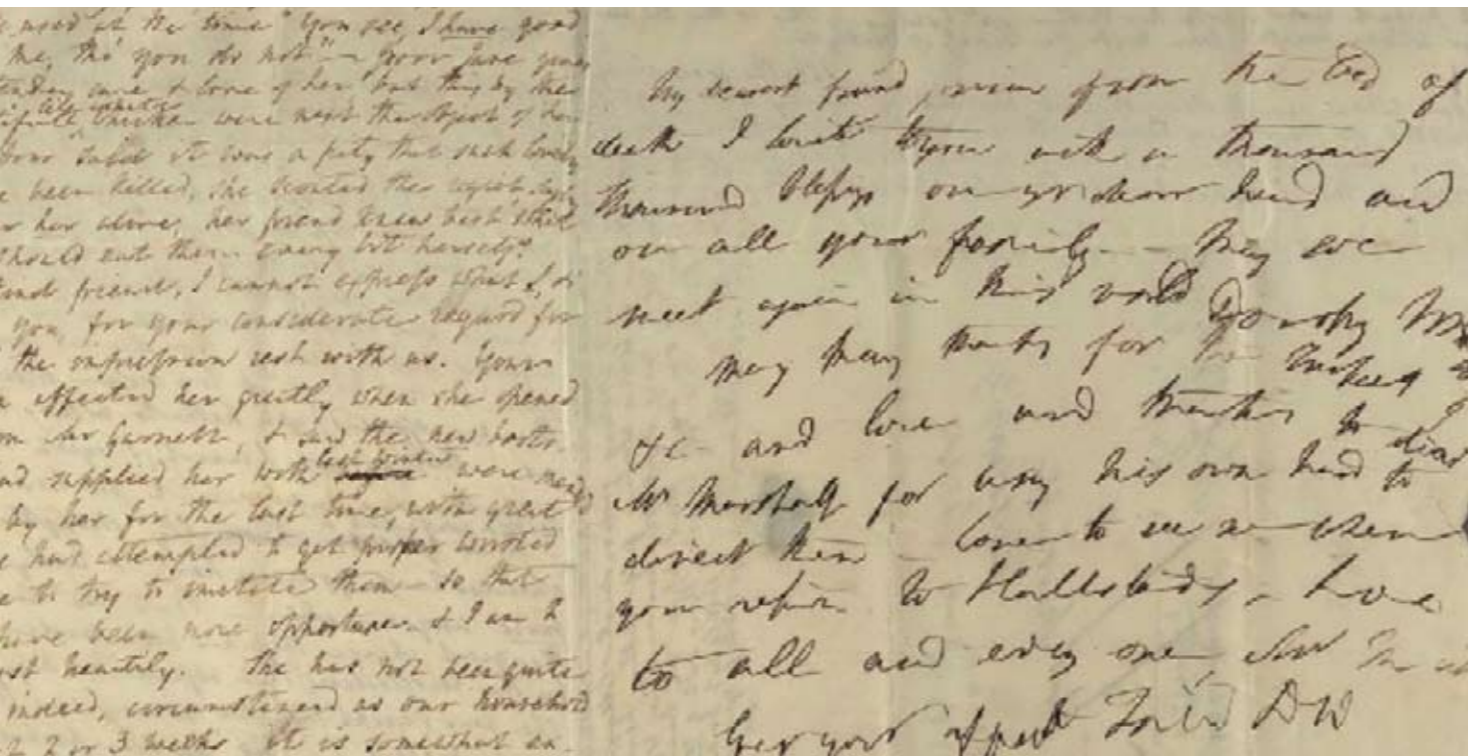 used at the time" You see, I have good
me, tho' you do not" — poor Jane
tender care & love of her but
like white
chicken were next the object of her
said it was a pity that such lovely
been killed, she scouted the
her alone, her friend knew best what
should eat them every bit herself"
kind friend, I cannot express what I, or
you, for your considerate regard for
the rest with us. Yours
affected her greatly when she opened
Mr Garnett, & said the new boots
last winter
and supplied her with were
by her for the last time, with great
had attempted to get proper worsted
to try to imitate them — so that
have been more opportune. & I am
most heartily. She has not been quite
indeed, circumstanced as our household
2 or 3 weeks it is somewhat
My dearest friend, from the bed of
death I write to you with a thousand
thousand on yr dear head and
on all your family — May we
meet again in this world Dorothy
Many many thanks for the
&c — and love and thanks to dear
Mr Marshall for using his own hand to
direct them — Come to see us when
your return to Hallsteads — Love
to all and every one
Ever your DW